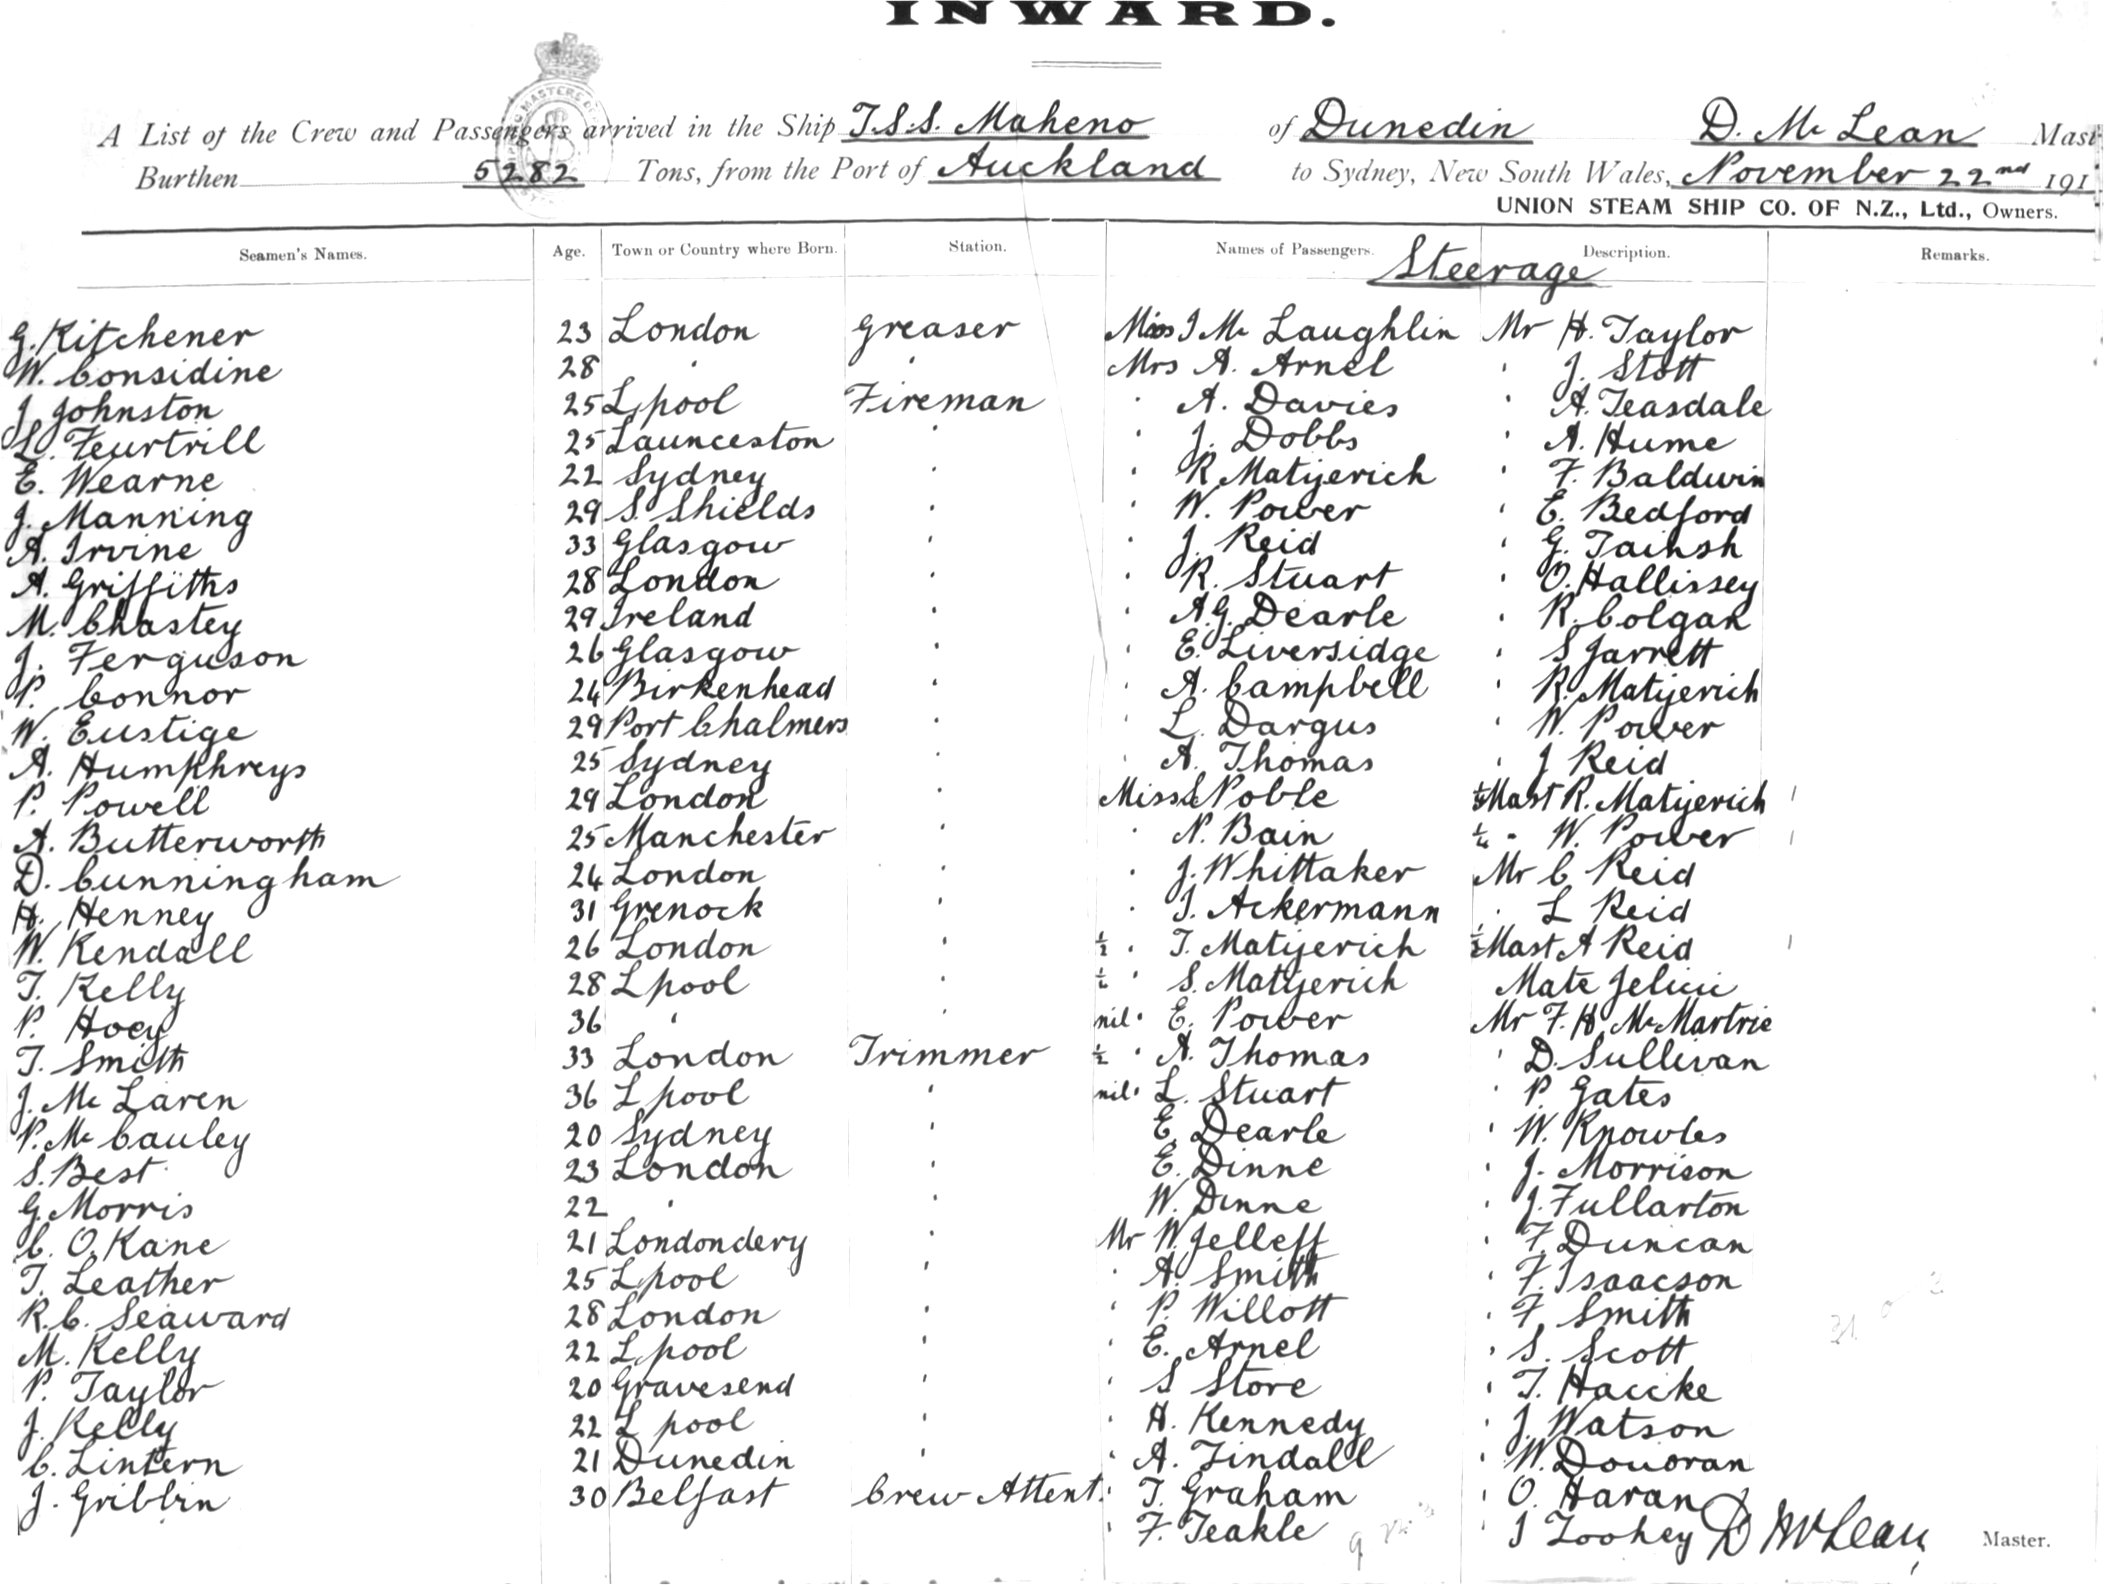 INWARD.
A List of the Crew and Passengers arrived in the Ship T.S.S. Maheno of Dunedin D. Mc Lean Mast
Burthen 5282 Tons, from the Port of Auckland to Sydney, New South Wales, November 22nd 191
UNION STEAM SHIP CO. OF N.Z., Ltd., Owners.
Seamen's Names. Age. Town or Country where Born. Station. Names of Passengers. Description. Remarks.
Steerage
G. Kitchener 23 London Greaser Miss J Mc Laughlin Mr H. Taylor
W. Considine 28 " " Mrs A. Arnel " J. Stott
J. Johnston 25 L,pool Fireman " A. Davies " A. Teasdale
L. Feurtrill 25 Launceston " " J. Dobbs " A. Hume
E. Wearne 22 Sydney " " R Matijerich " F. Baldwin
J. Manning 29 S. Shields " " W. Power " E. Bedford
A. Irvine 33 Glasgow " " J. Reid " G. Tainsh
A. Griffiths 28 London " " R. Stuart " O. Hallissey
M. Chastey 29 Ireland " " A.G. Dearle " R. Colgan
J. Ferguson 26 Glasgow " " E. Liversidge " S Jarrett
P. Connor 24 Birkenhead " " A. Campbell " R. Matijerich
W. Eustige 29 Port Chalmers " " L. Dargus " W. Power
A. Humphreys 25 Sydney " " A. Thomas " J Reid
P. Powell 29 London " Miss L Noble ½ Mast R. Matijerich 1
A. Butterworth 25 Manchester " " N. Bain ½ " W. Power 1
D. Cunningham 24 London " " J. Whittaker Mr C Reid
H. Henney 31 Grenock " " I. Ackermann " L Reid
W. Kendall 26 London " ½ " T. Matijerich ½ Mast A Reid 1
T. Kelly 28 L pool " ½ " S. Matijerich Mate Jelicic
P. Hoey 36 " " nil " E. Power Mr F. H. McMartrie
T. Smith 33 London Trimmer ½ " A. Thomas " D. Sullivan
J. Mc Laren 36 L pool " nil " L. Stuart " P. Gates
P. Mc Cauley 20 Sydney " E. Dearle " W. Knowles
S. Best 23 London " E. Dinne " J. Morrison
G. Morris 22 " " W. Dinne " J. Fullarton
C. O,Kane 21 Londondery " Mr W. Jelleff " F. Duncan
T. Leather 25 L,pool " " A. Smith " F. Isaacson
R. C. Seaward 28 London " " P. Willott " F. Smith
M. Kelly 22 L,pool " " E. Arnel " S. Scott
P. Taylor 20 Gravesend " " S Store " T. Haccke
J. Kelly 22 L pool " " H. Kennedy " J. Watson
C. Lintern 21 Dunedin " " A. Tindall " W. Donovan
J. Gribbin 30 Belfast Crew Attent. " T. Graham " O. Haran
" F. Teakle " J Toohey D McLean, Master.